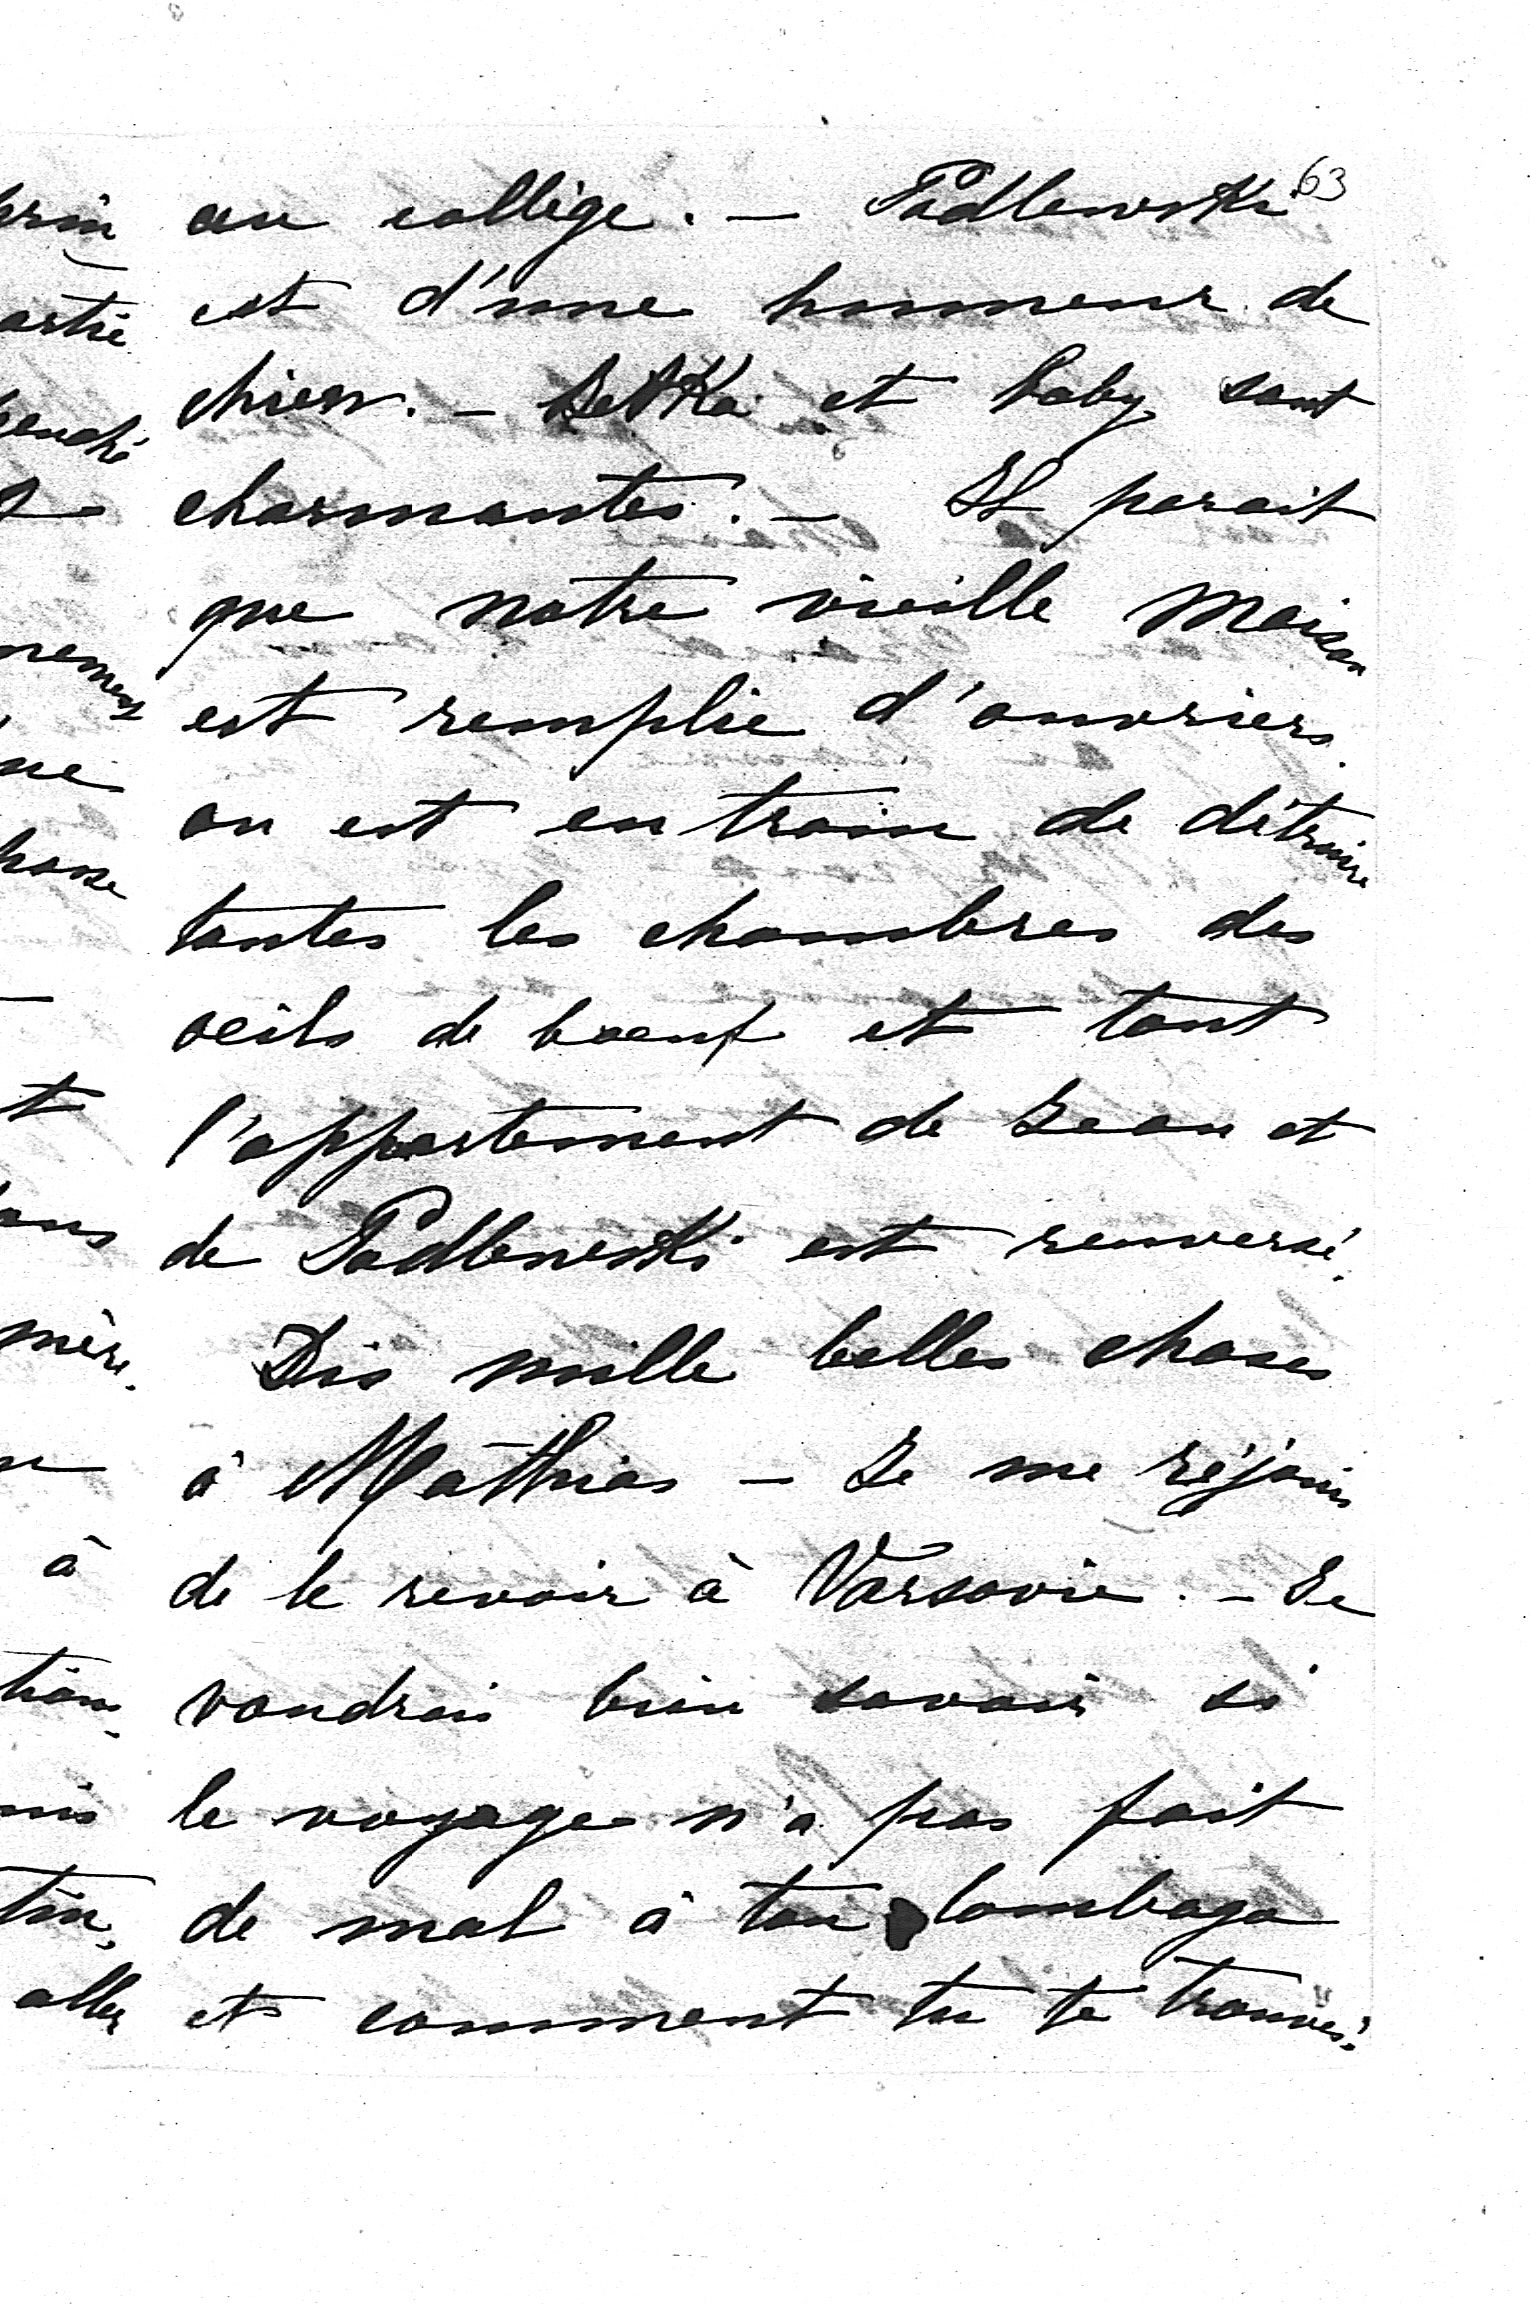 63
au collège. — Podlewski
est d'une humeur de
chien. — Betka et baby sont
charmantes. — Il parait
que notre vieille maison
est remplie d'ouvriers.
on est en train de détruire
toutes les chambres des
oeils de boeuf et tout
l'appartement de Jean et
de Podlewski est renversé.
Dis mille belles choses
à Mathias — Je me réjouis
de le revoir à Varsovie. — Je
voudrais bien savoir si
le voyage n'a pas fait
de mal à ton lombago
et comment tu te trouves.
artie
ne
chose
t
mère.
à
aller